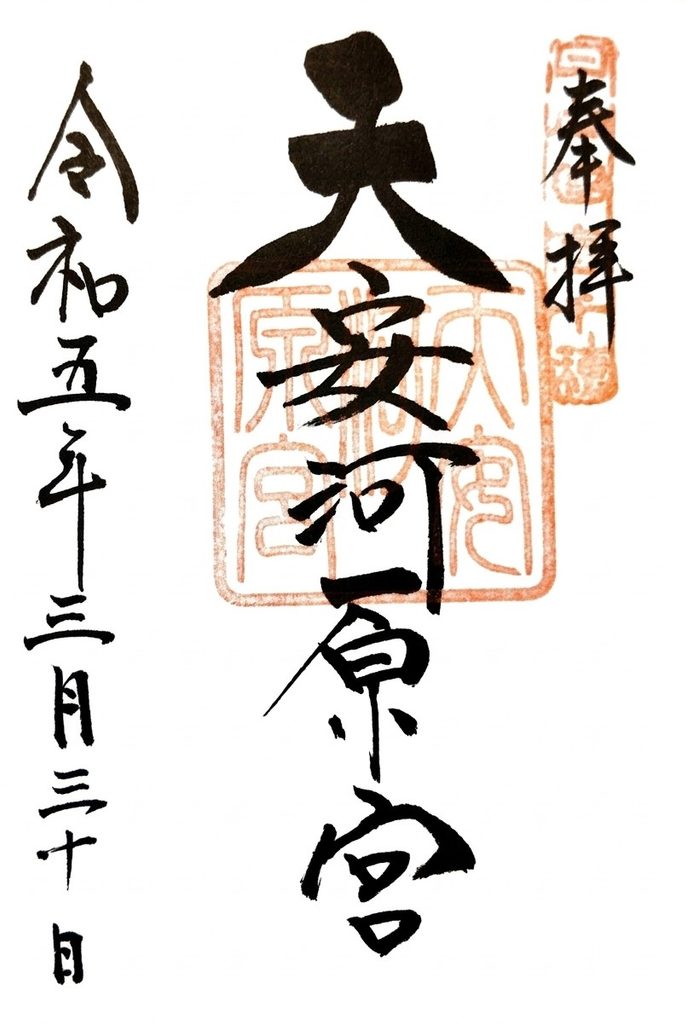 奉拝
天安河原宮
天安
河
原宮
令和五年三月三十日